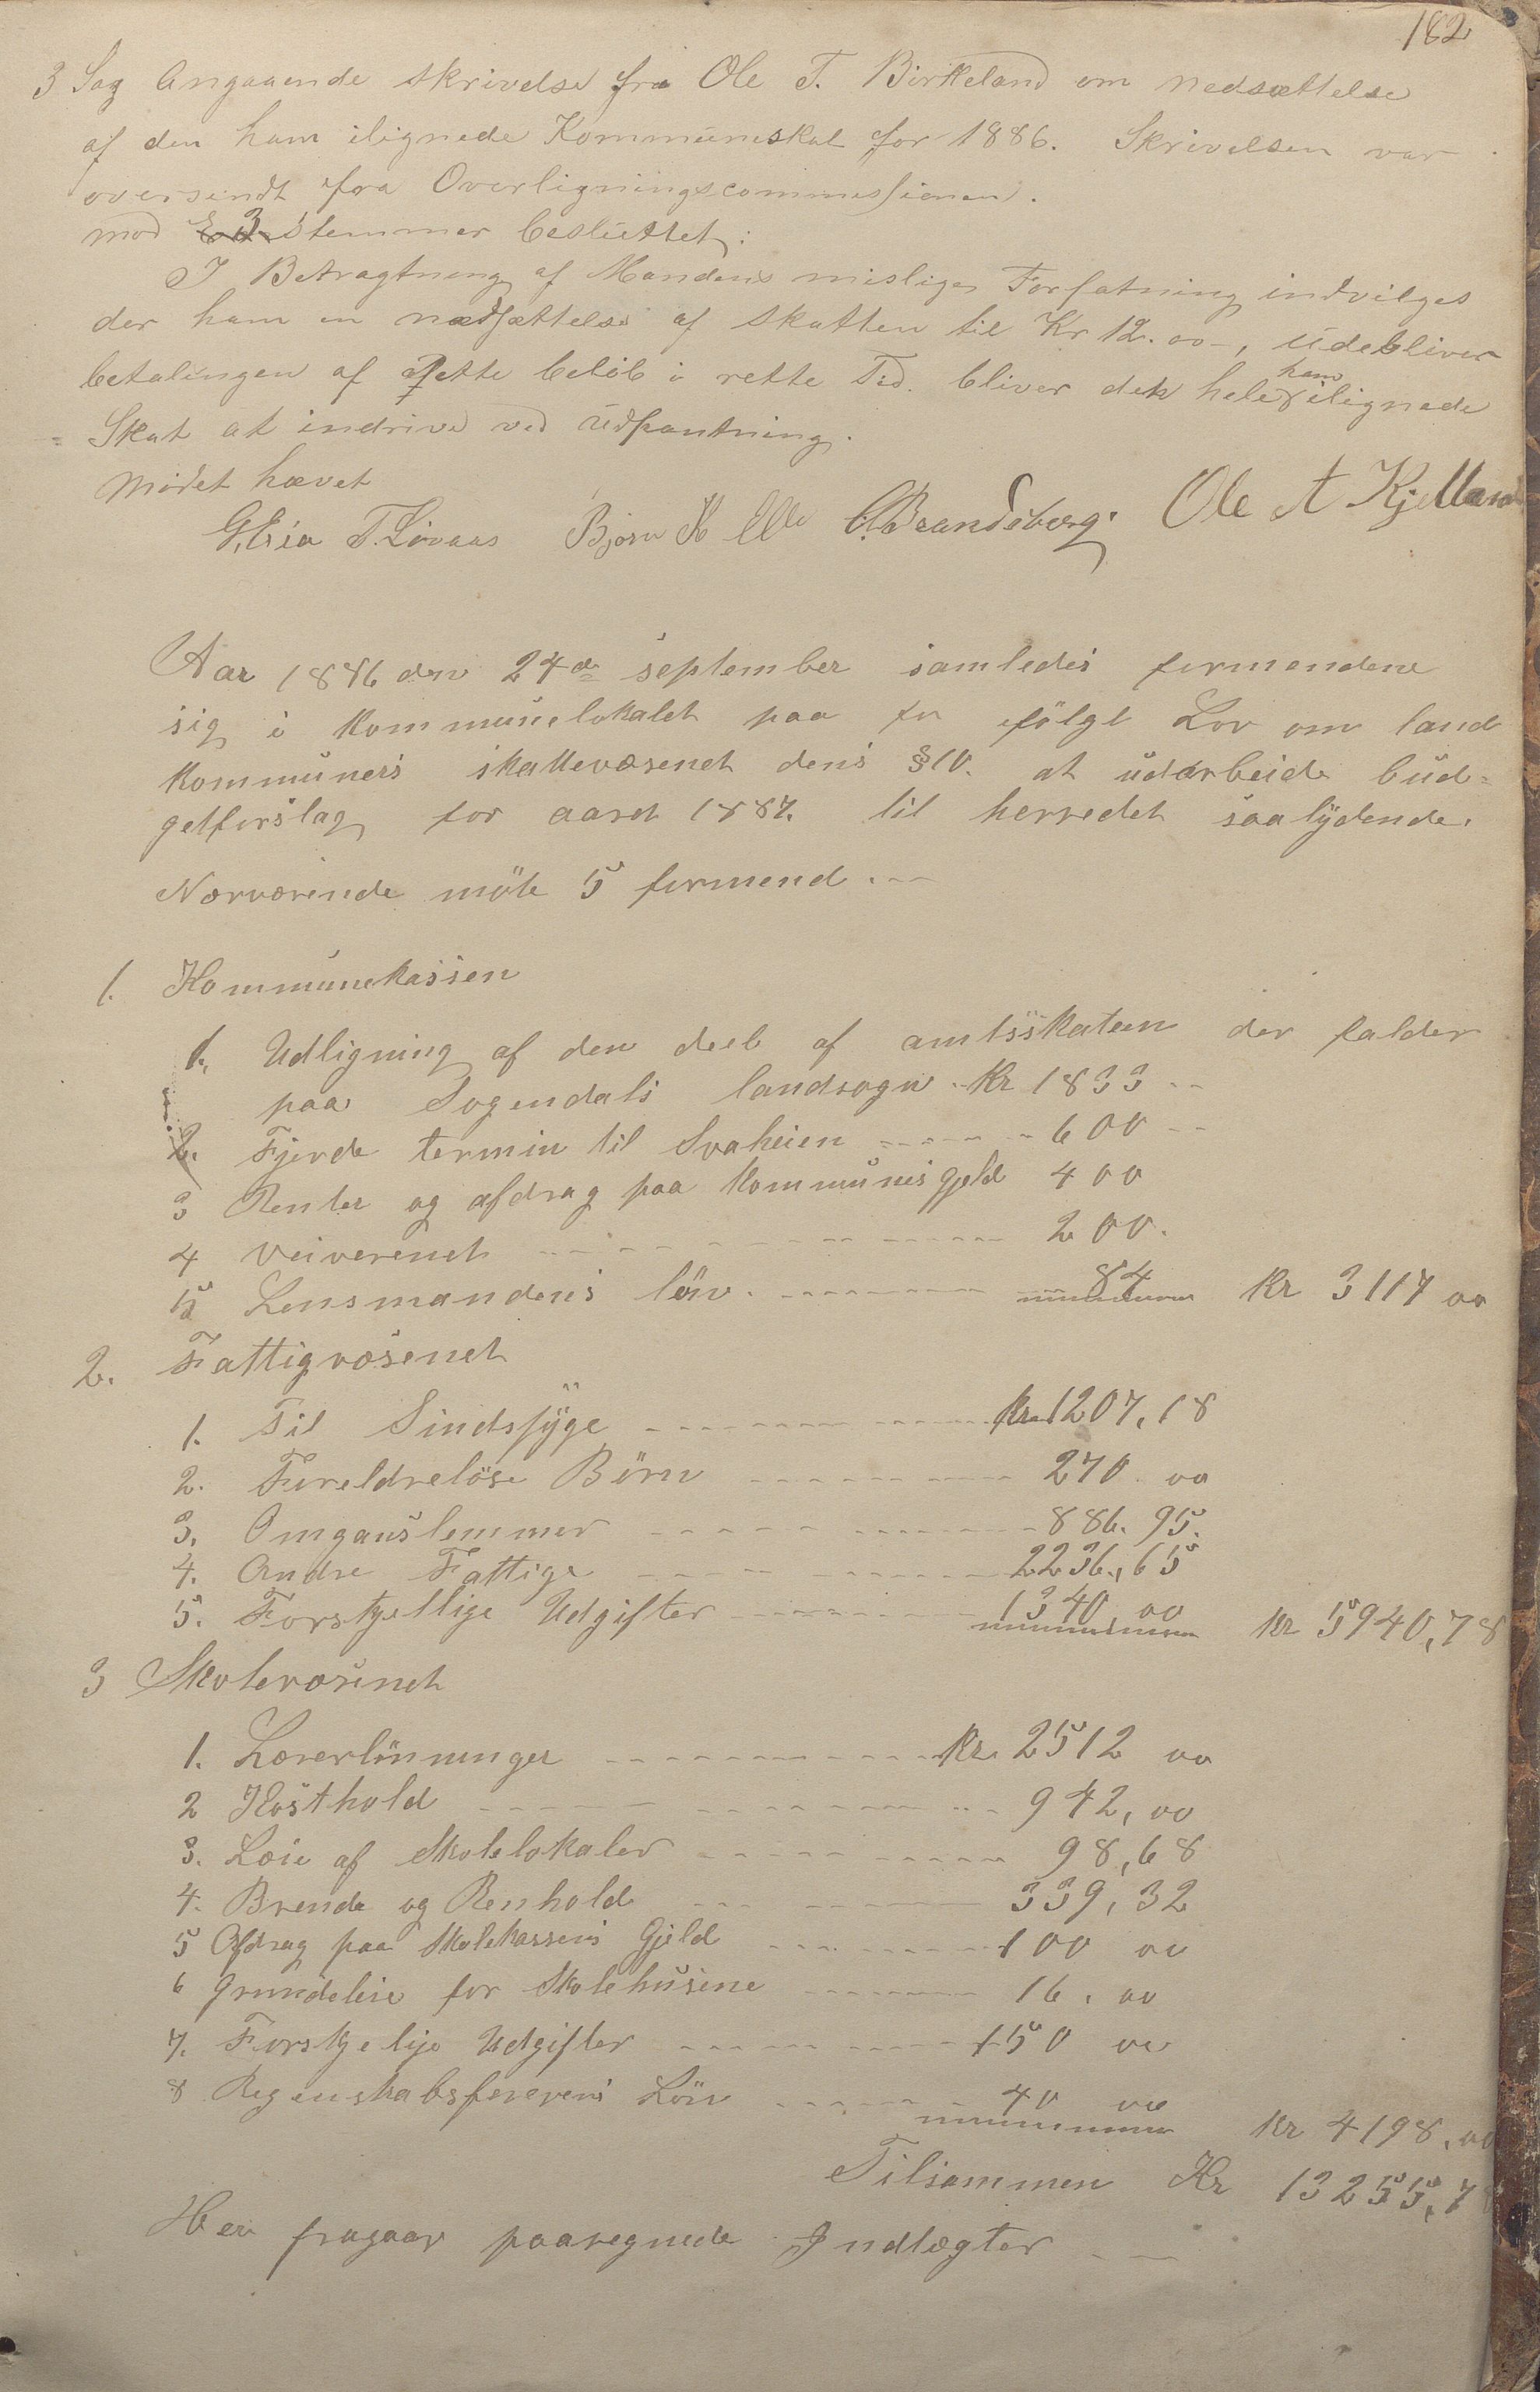 182
3 Sag Angaaende Skrivelse fra Ole T. Birkeland om Nedsættelse
af den ham ilignede Kommuneskat for 1886. Skrivelsen var
oversendt fra Overligningscommissionen.
mod 3 Stemmer besluttet:
I Betragtning af Mandens mislige Forfatning indvilges
der ham en nedsættelse af Skatten til Kr 12.00 -, udebliver
betalingen af dette beløb i rette Tid. bliver den hele ham ilignede
Skat at indrive ved Udpantning.
Mødet hævet
G. Eia T. Løvaas Bjørn H Elle C. Brandsberg. Ole A Kjelland
Aar 1886 den 24de september samledes formendene
sig i Kommunelokalet paa for følge Lov om land
kommuners skattevæsenet dens §10. at udarbeide bud=
getforslag for aaret 1887. til herredet saalydende.
Nærværende møte 5 formend . --
1. Kommunekassen
1. Udligning af den deel af amtsskaten der falder
paa Sogendals landsogn - Kr 1833 --
2. Fjerde termin til Svaheien ------ 600 --
3 Renter og afdrag paa Kommunes gjeld 400
4 Veiverenet -- - - - - - ------ 200.
5 Lensmandens løn. --------- 84 Kr 3117 00
2. Fattigvæsenet
1. Til Sindssyge ------- ------ Kr 1207,18
2. Foreldreløse Børn ------------ 270. 00
3. Omganslemmer - - - - - -------- 886. 95.
4. Andre Fattige ----- -------- 2236,65
5. Forskjellige Udgifter ---------- 1340,00 Kr 5940,78
3 Skolevæsenet
1. Lærerlønninger ----------- Kr. 2512 00
2 Kosthold ------- ---------- 942,00
3. Leie af Skolelokaler ----- ------ 98,68
4. Brende og Renhold --- ------- 339,32
5 Afdrag paa Skolekassens Gjeld --------- 100 00
6 Grundeleie for Skolehusene -------- 16. 00
7. Forskjelige Udgifter ------ ------ 150 00
8 Regenskabsførerens Løn ------- 40 00 Kr 4198,00
Tilsammen Kr 13255,78
Her fragaar paaregnede Indtægter -- --